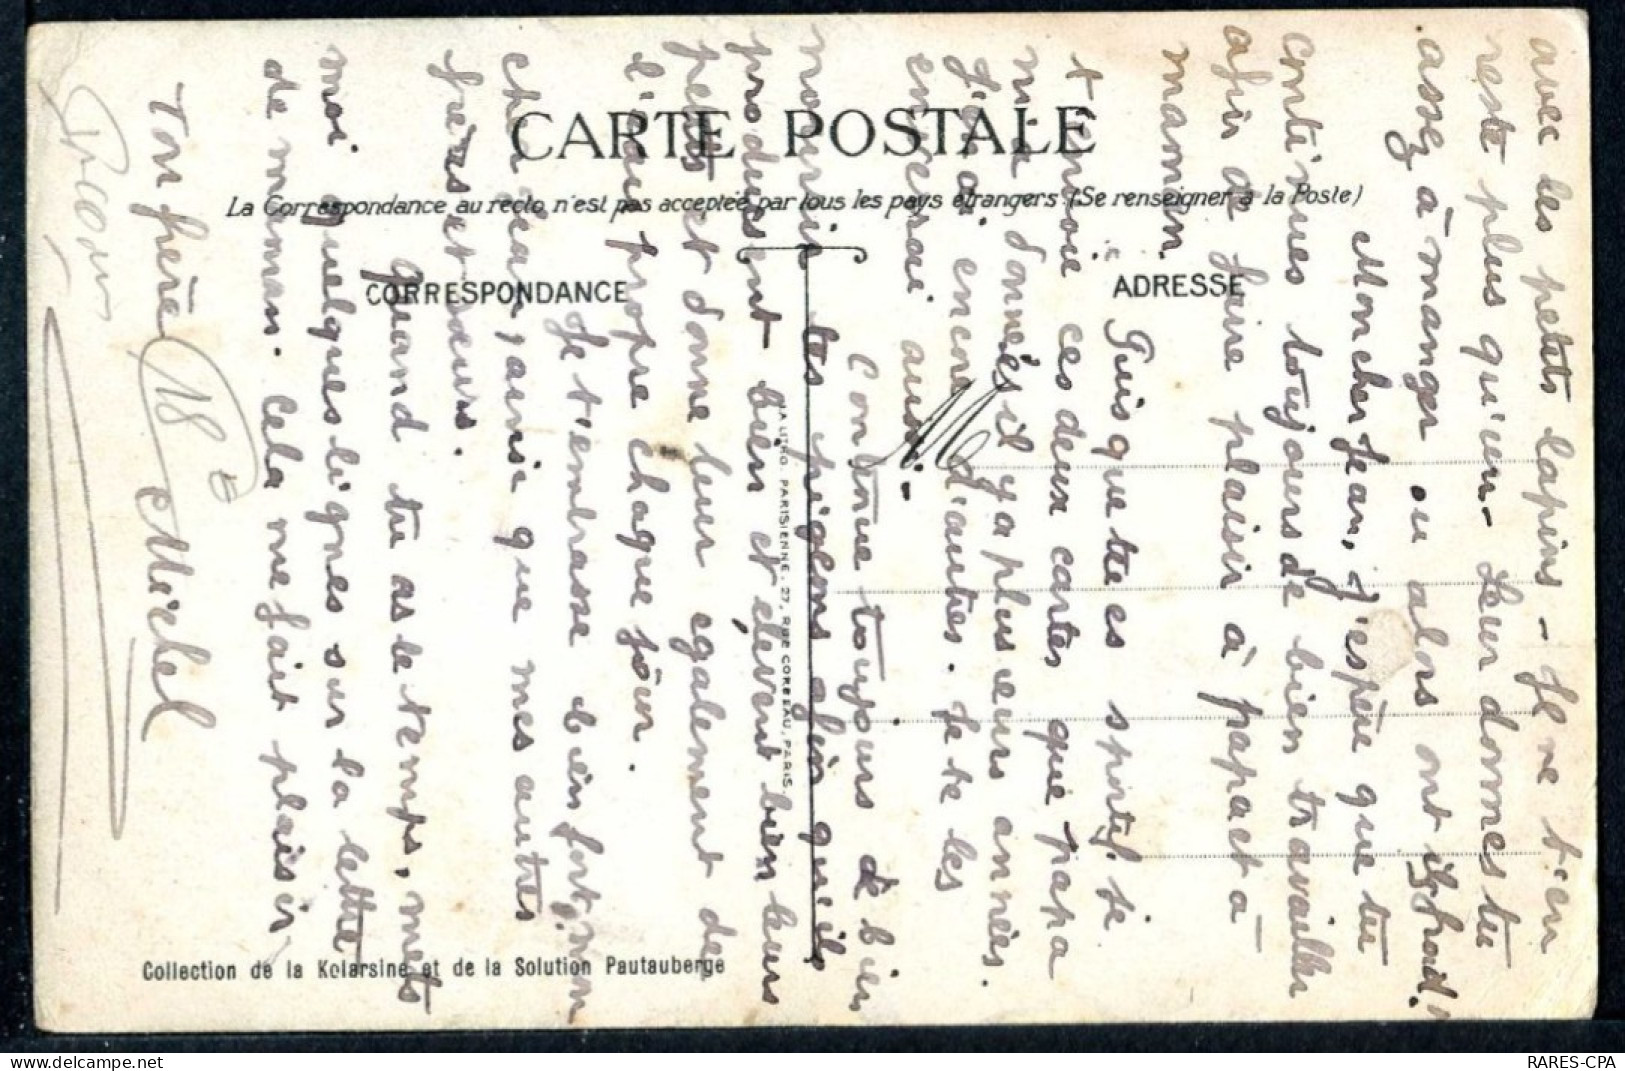 CARTE POSTALE
La Correspondance au recto n'est pas acceptée par tous les pays étrangers (Se renseigner à la Poste)
CORRESPONDANCE
ADRESSE
NA LITHO. PARISIENNE. 27, RUE CORBEAU, PARIS
Collection de la Kolarsine et de la Solution Pautauberge
Mon cher Jean, J'espère que tu
continues toujours de bien travailler
afin de faire plaisir à papa et à
maman.
Puisque tu es sportif je
t'envoie ces deux cartes que papa
m'a données il y a plusieurs années.
J'en ai encore d'autres. Je te les
enverrai aussi.
Continue toujours de bien
nourrir les pigeons afin qu'ils
produisent bien et élèvent bien leurs
petits et donne leur egalement de
l'eau propre chaque jour.
Je t'embrasse bien fort, mon
cher Jean, ainsi que mes autres
frères et sœurs.
Quand tu as le temps, mets
moi quelques lignes sur la lettre
de maman. Cela me fait plaisir
Ton frère Michel
18 E
avec les petits lapins - Il ne t'en
reste plus qu'un - Leur donnes tu
assez à manger ou alors ont ils froid.
RARES-CPA